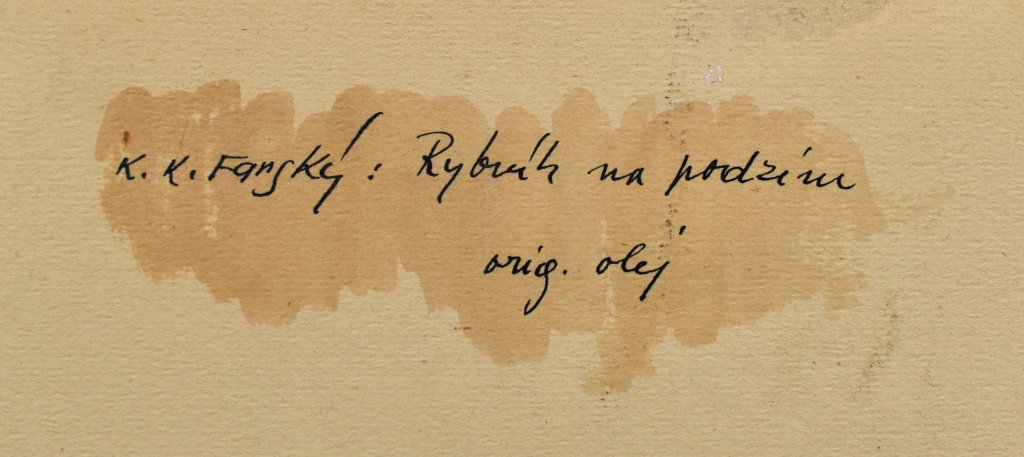 K. K. Fanský: Rybník na podzim
orig. olej